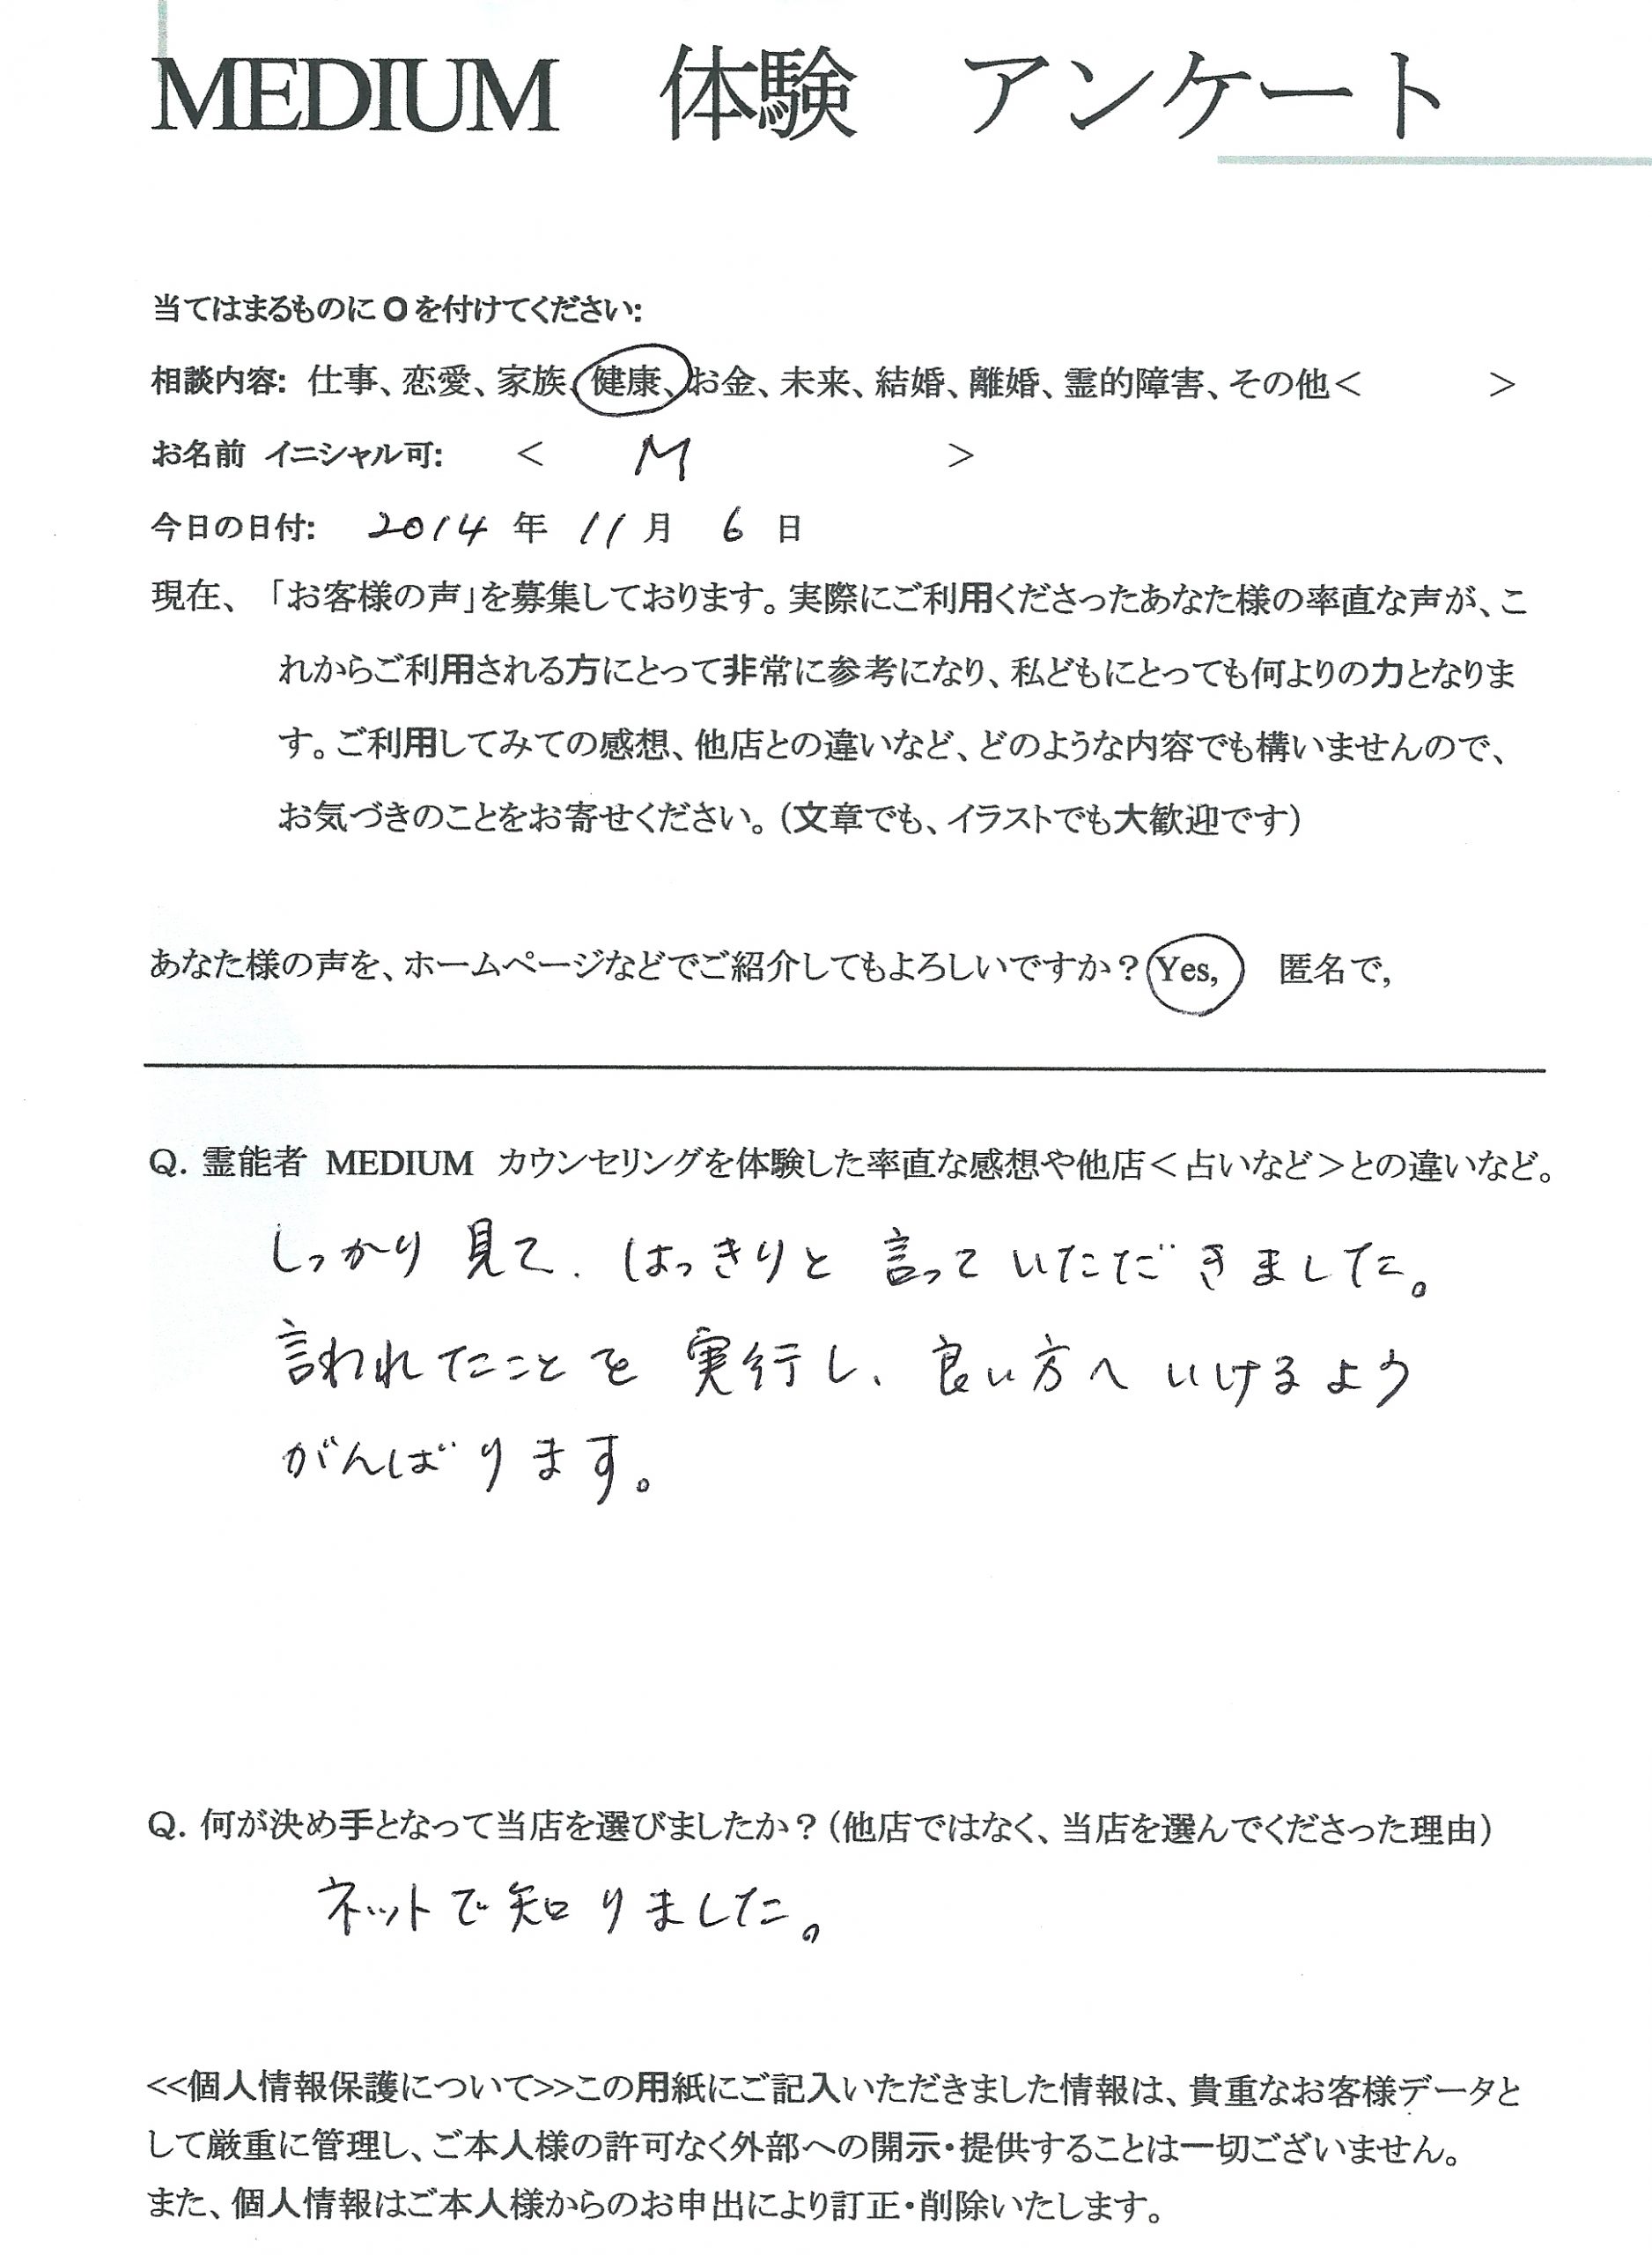 MEDIUM 体験 アンケート
当てはまるものに O を付けてください:
相談内容: 仕事、恋愛、家族、健康、お金、未来、結婚、離婚、霊的障害、その他＜ ＞
お名前 イニシャル可: ＜ M ＞
今日の日付: 2014 年 11 月 6 日
現在、「お客様の声」を募集しております。実際にご利用くださったあなた様の率直な声が、こ
れからご利用される方にとって非常に参考になり、私どもにとっても何よりの力となりま
す。ご利用してみての感想、他店との違いなど、どのような内容でも構いませんので、
お気づきのことをお寄せください。（文章でも、イラストでも大歓迎です）
あなた様の声を、ホームページなどでご紹介してもよろしいですか？ Yes, 匿名で,
Q. 霊能者 MEDIUM カウンセリングを体験した率直な感想や他店＜占いなど＞との違いなど。
しっかり見て、はっきりと言っていただきました。
言われたことを実行し、良い方へいけるよう
がんばります。
Q. 何が決め手となって当店を選びましたか？（他店ではなく、当店を選んでくださった理由）
ネットで知りました。
<<個人情報保護について>>この用紙にご記入いただきました情報は、貴重なお客様データと
して厳重に管理し、ご本人様の許可なく外部への開示・提供することは一切ございません。
また、個人情報はご本人様からのお申出により訂正・削除いたします。